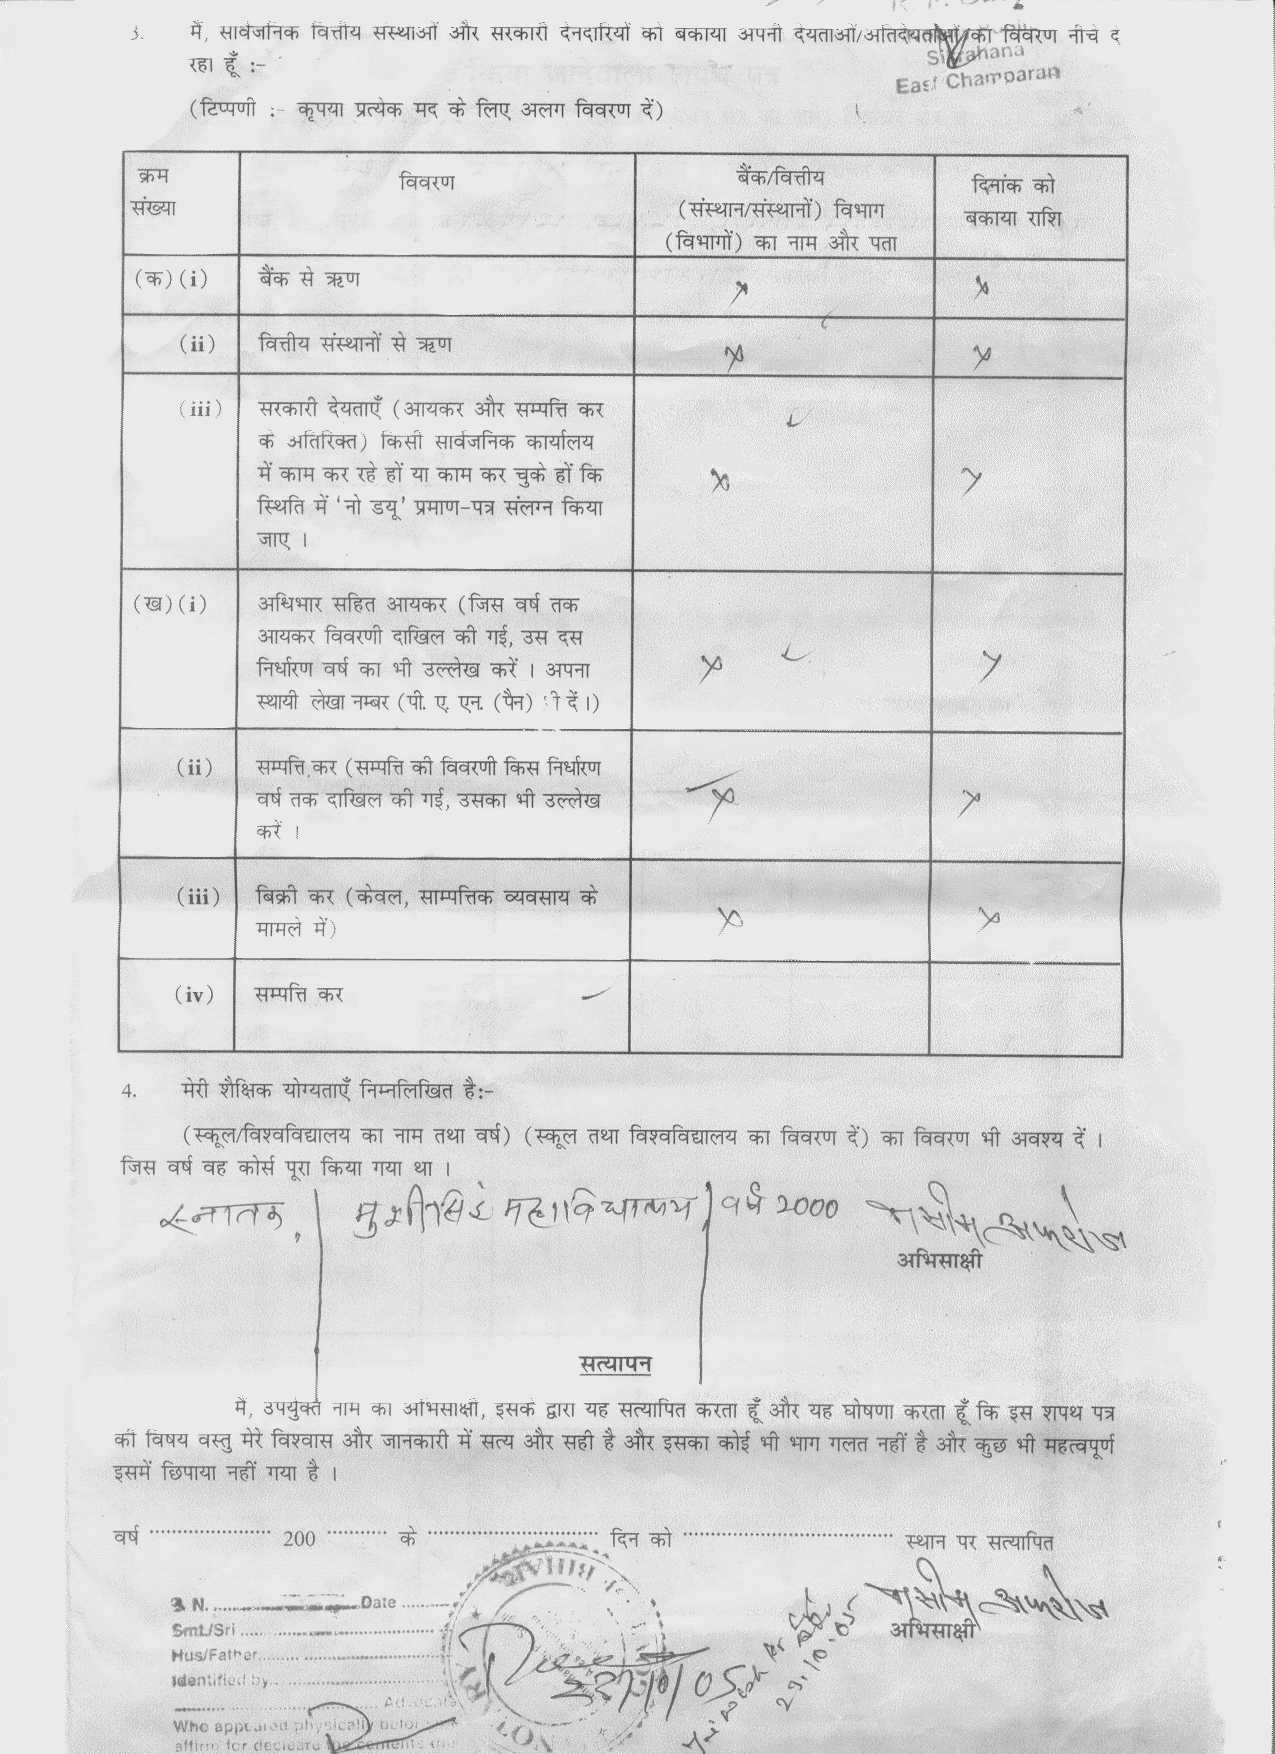 3. मैं, सार्वजनिक वित्तीय संस्थाओं और सरकारी देनदारियों को बकाया अपनी देयताओं/अतिदेयताओं का विवरण नीचे दे
रहा हूँ :-
East Champaran
(टिप्पणी :- कृपया प्रत्येक मद के लिए अलग विवरण दें)
क्रम संख्या
विवरण
बैंक/वित्तीय
(संस्थान/संस्थानों) विभाग
(विभागों) का नाम और पता
दिनांक को
बकाया राशि
(क)(i) बैंक से ऋण x x
(ii) वित्तीय संस्थानों से ऋण x x
(iii) सरकारी देयताएँ (आयकर और सम्पत्ति कर
के अतिरिक्त) किसी सार्वजनिक कार्यालय
में काम कर रहे हों या काम कर चुके हों कि
स्थिति में 'नो डयू' प्रमाण-पत्र संलग्न किया
जाए ।
x x
(ख)(i) अधिभार सहित आयकर (जिस वर्ष तक
आयकर विवरणी दाखिल की गई, उस दस
निर्धारण वर्ष का भी उल्लेख करें । अपना
स्थायी लेखा नम्बर (पी. ए. एन. (पैन) भी दें।)
x x
(ii) सम्पत्ति कर (सम्पत्ति की विवरणी किस निर्धारण
वर्ष तक दाखिल की गई, उसका भी उल्लेख
करें ।
x x
(iii) बिक्री कर (केवल, साम्पत्तिक व्यवसाय के
मामले में)
x x
(iv) सम्पत्ति कर
4. मेरी शैक्षिक योग्यताएँ निम्नलिखित है:-
(स्कूल/विश्वविद्यालय का नाम तथा वर्ष) (स्कूल तथा विश्वविद्यालय का विवरण दें) का विवरण भी अवश्य दें ।
जिस वर्ष वह कोर्स पूरा किया गया था ।
स्नातक, मुंशी सिंह महाविद्यालय, वर्ष 2000 नसीम अफरोज
अभिसाक्षी
सत्यापन
मैं, उपर्युक्त नाम का अभिसाक्षी, इसके द्वारा यह सत्यापित करता हूँ और यह घोषणा करता हूँ कि इस शपथ पत्र
की विषय वस्तु मेरे विश्वास और जानकारी में सत्य और सही है और इसका कोई भी भाग गलत नहीं है और कुछ भी महत्वपूर्ण
इसमें छिपाया नहीं गया है ।
वर्ष ..................... 200 .......... के ............................. दिन को .................................... स्थान पर सत्यापित
नसीम अफरोज
अभिसाक्षी
S. N. .................... Date ..........
Smt./Sri ....................
Hus/Father....................
Identified by....................
.................... Advocate
Who appeared physically before
affirm for declare the contents
BIHAR
NOTARY
27/10/05